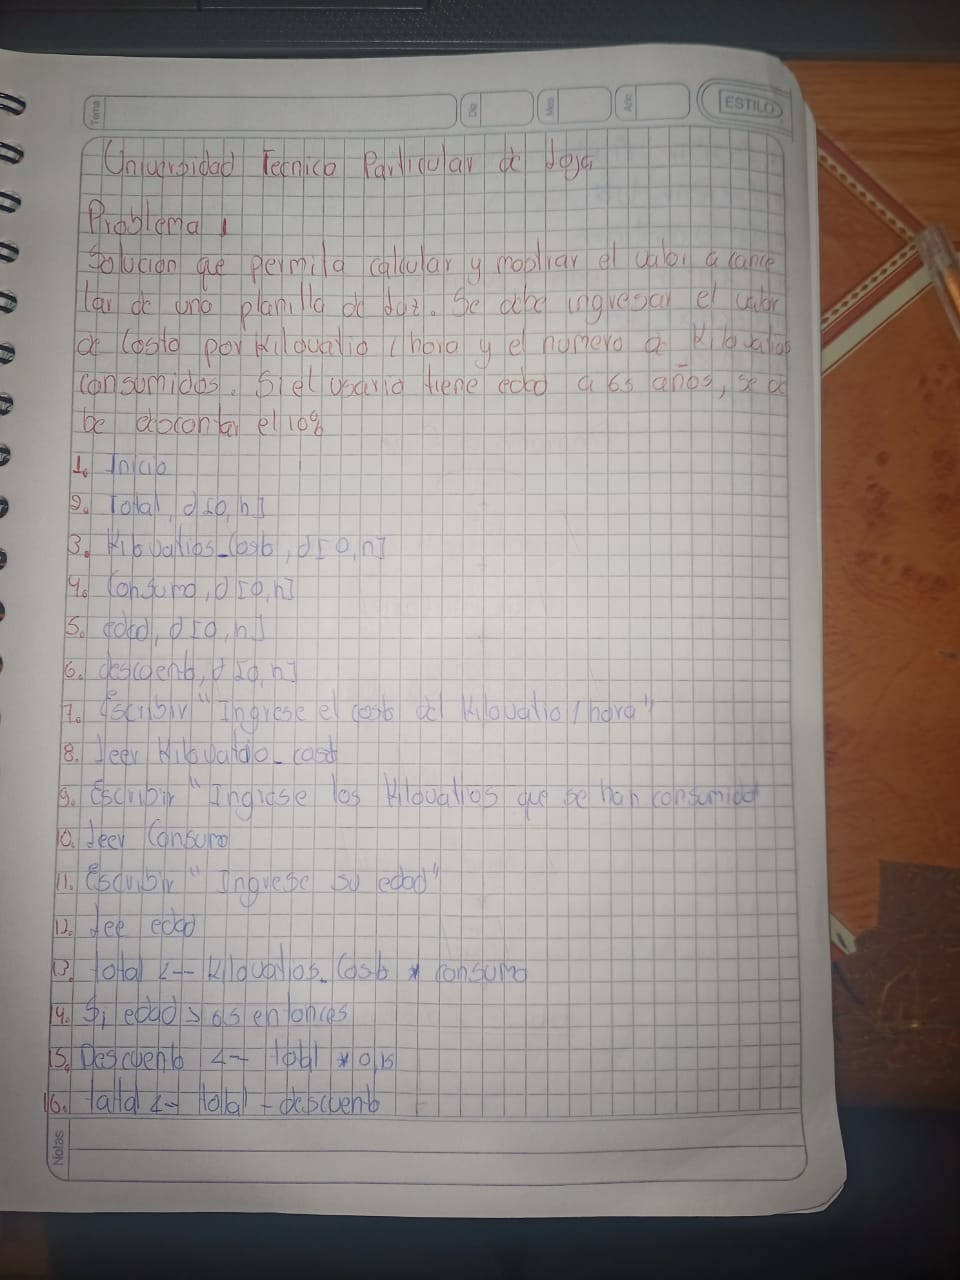 Tema
Dia
Mes
Año
ESTILO
Universidad Tecnico Particular de Loja
Problema 1
Solucion que permita calcular y mostrar el valor a cance
lar de una planilla de luz. Se debe ingresar el valor
de Costo por Kilovatio / hora y el numero de Kilovatios
consumidos. Si el usario tiene edad a 65 años, se de
be descontar el 10%
1. Inicio
2. Total, d [0, n]
3. Kilovatios_Costo, d [0, n]
4. Consumo, d [0, n]
5. edad, d [0, n]
6. descuento, d [0, n]
7. Escribir "Ingrese el costo del Kilovatio / hora"
8. Leer Kilovatio_cost
9. Escribir "Ingrese los Kilovatios que se han consumido
10. Leer Consumo
11. Escribir "Ingrese su edad"
12. Lee edad
13. total <-- Kilovatios_Costo * consumo
14. Si edad > 65 entonces
15. Descuento <- total *
16. total <- total - descuento
Notas